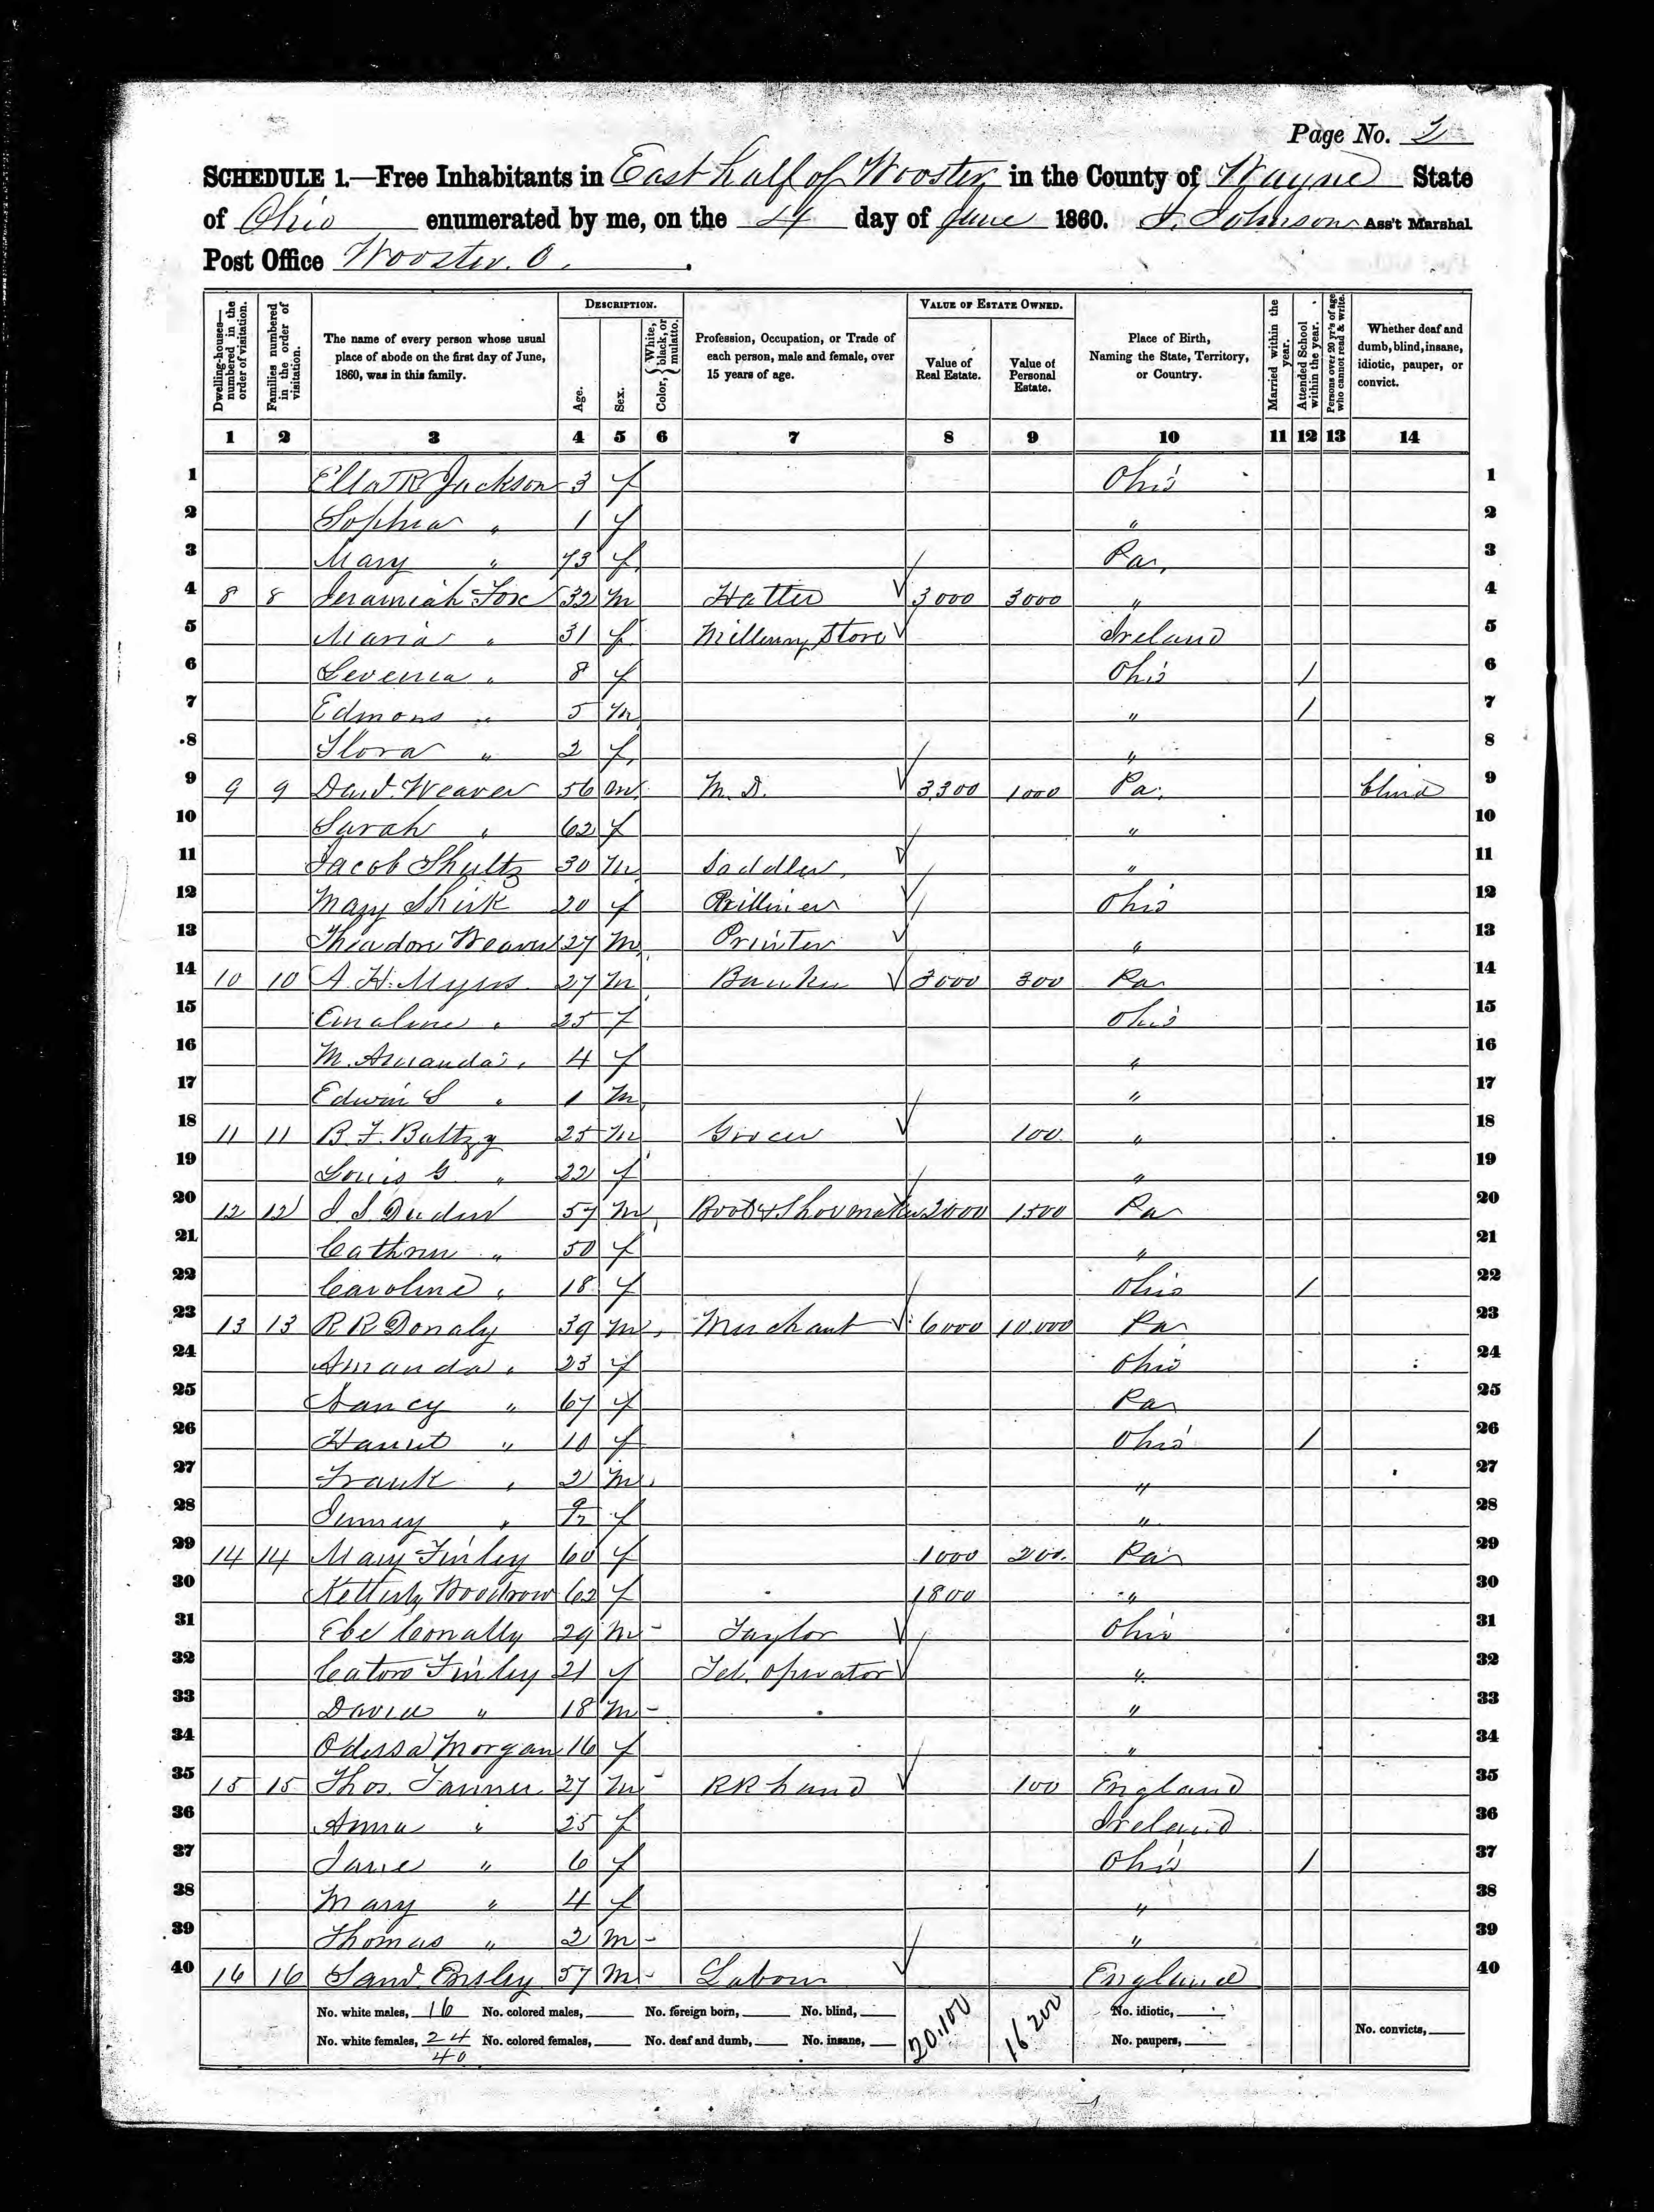 Page No. 2
SCHEDULE 1.—Free Inhabitants in East half of Wooster in the County of Wayne State
of Ohio enumerated by me, on the 4 day of June 1860. J. Johnson Ass't Marshal
Post Office Wooster. O.
Dwelling-houses—numbered in the order of visitation. Families numbered in the order of visitation. The name of every person whose usual place of abode on the first day of June, 1860, was in this family. DESCRIPTION. Age. Sex. Color, {White, black, or mulatto. Profession, Occupation, or Trade of each person, male and female, over 15 years of age. VALUE OF ESTATE OWNED. Value of Real Estate. Value of Personal Estate. Place of Birth, Naming the State, Territory, or Country. Married within the year. Attended School within the year. Persons over 20 yr's of age who cannot read & write. Whether deaf and dumb, blind, insane, idiotic, pauper, or convict.
1 2 3 4 5 6 7 8 9 10 11 12 13 14
1 Ella R Jackson 3 f Ohio 1
2 Sophia " 1 f " 2
3 Mary " 73 f Pa. 3
4 8 8 Jeramiah Fox 32 m Hatter 3000 3000 " 4
5 Maria " 31 f Millinery Store Ireland 5
6 Levenia " 8 f Ohio / 6
7 Edmons " 5 m " / 7
8 Flora " 2 f " 8
9 9 9 David Weaver 56 m M. D. 3300 1000 Pa. blind 9
10 Sarah " 62 f " 10
11 Jacob Shultz 30 m Saddler " 11
12 Mary Shirk 20 f Millinier Ohio 12
13 Theadore Weaver 27 m Printer " 13
14 10 10 A. H. Myers 27 m Banker 3000 300 Pa 14
15 Emaline " 25 f Ohio 15
16 M. Amanda " 4 f " 16
17 Edwin S " 1 m " 17
18 11 11 B. F. Baltzy 25 m Grocer 100 " 18
19 Louis G. " 22 f " 19
20 12 12 57 m Boot & Shoemaker 2000 1500 Pa 20
21 Cathrin " 50 f " 21
22 Caroline " 18 f Ohio / 22
23 13 13 R R Donaly 39 m Merchant 6000 10,000 Pa 23
24 Amanda " 23 f Ohio 24
25 Nancy " 67 f Pa 25
26 Harriet " 10 f Ohio / 26
27 Frank " 2 m " 27
28 Jenney " 9/12 f " 28
29 14 14 Mary Finley 60 f 1000 200 Pa 29
30 Woodrow 62 f 1800 " 30
31 Ebe Conally 29 m Taylor Ohio 31
32 Finley 21 f Tel. Operator " 32
33 David " 18 m " 33
34 Odessa Morgan 16 f " 34
35 15 15 Thos. Tanner 27 m RR hand 100 England 35
36 Anna " 25 f Ireland 36
37 Jane " 6 f Ohio / 37
38 Mary " 4 f " 38
39 Thomas " 2 m " 39
40 16 16 57 m Labour England 40
No. white males, 16 No. colored males, No. foreign born, No. blind, 20,100 16200 No. idiotic,
No. white females, 24 No. colored females, No. deaf and dumb, No. insane, No. paupers, No. convicts,
40